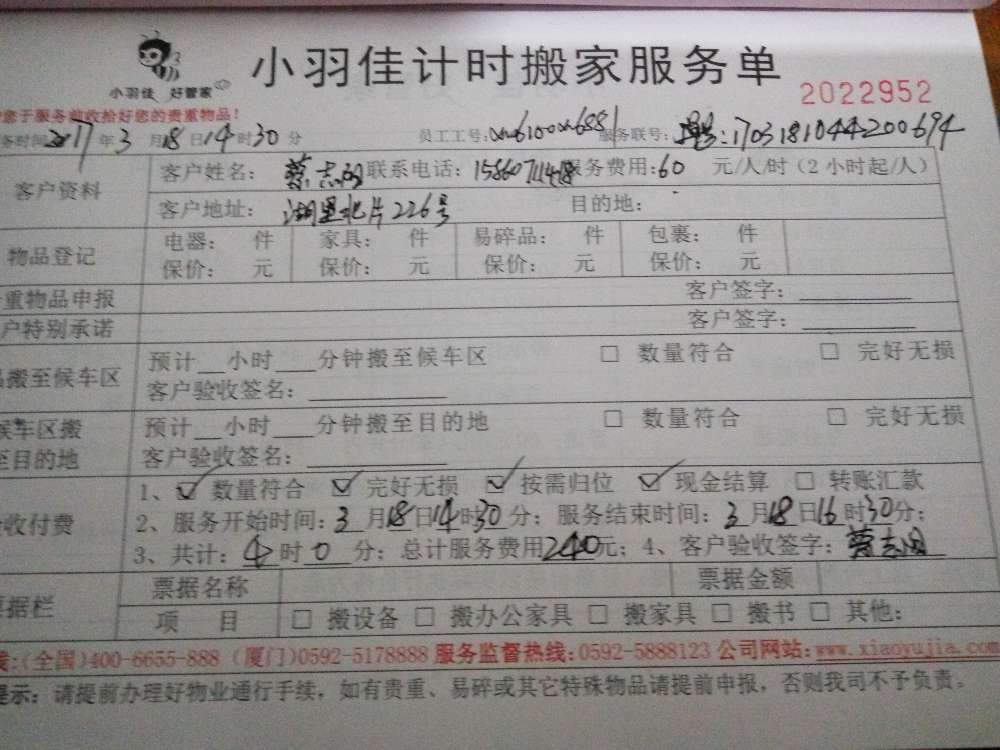 小羽佳计时搬家服务单
小羽佳 好管家
2022952
您于服务前收拾好您的贵重物品!
务时间2017年3月18日14时30分 员工工号: 服务联号: 1703181044200694
客户资料 客户姓名: 蔡志 联系电话: 服务费用:60 元/人/时(2小时起/人)
客户地址: 湖里北片226号 目的地:
物品登记 电器: 件 家具: 件 易碎品: 件 包裹: 件
保价: 元 保价: 元 保价: 元 保价: 元
重物品申报 客户签字:
户特别承诺 客户签字:
搬至候车区 预计__小时___分钟搬至候车区 □ 数量符合 □ 完好无损
客户验收签名:
候车区搬 预计__小时___分钟搬至目的地 □ 数量符合 □ 完好无损
至目的地 客户验收签名:
收付费 1、☑ 数量符合 ☑ 完好无损 ☑ 按需归位 ☑ 现金结算 □ 转账汇款
2、服务开始时间:3月18日14时30分;服务结束时间:3月18日16时30分;
3、共计:4时0分;总计服务费用240元;4、客户验收签字:蔡志
据栏 票据名称 票据金额
项 目 □ 搬设备 □ 搬办公家具 □ 搬家具 □ 搬书 □ 其他:
线:(全国)400-6655-888 (厦门)0592-5178888 服务监督热线:0592-5888123 公司网站:www.xiaoyujia.com
提示:请提前办理好物业通行手续,如有贵重、易碎或其它特殊物品请提前申报,否则我司不予负责。